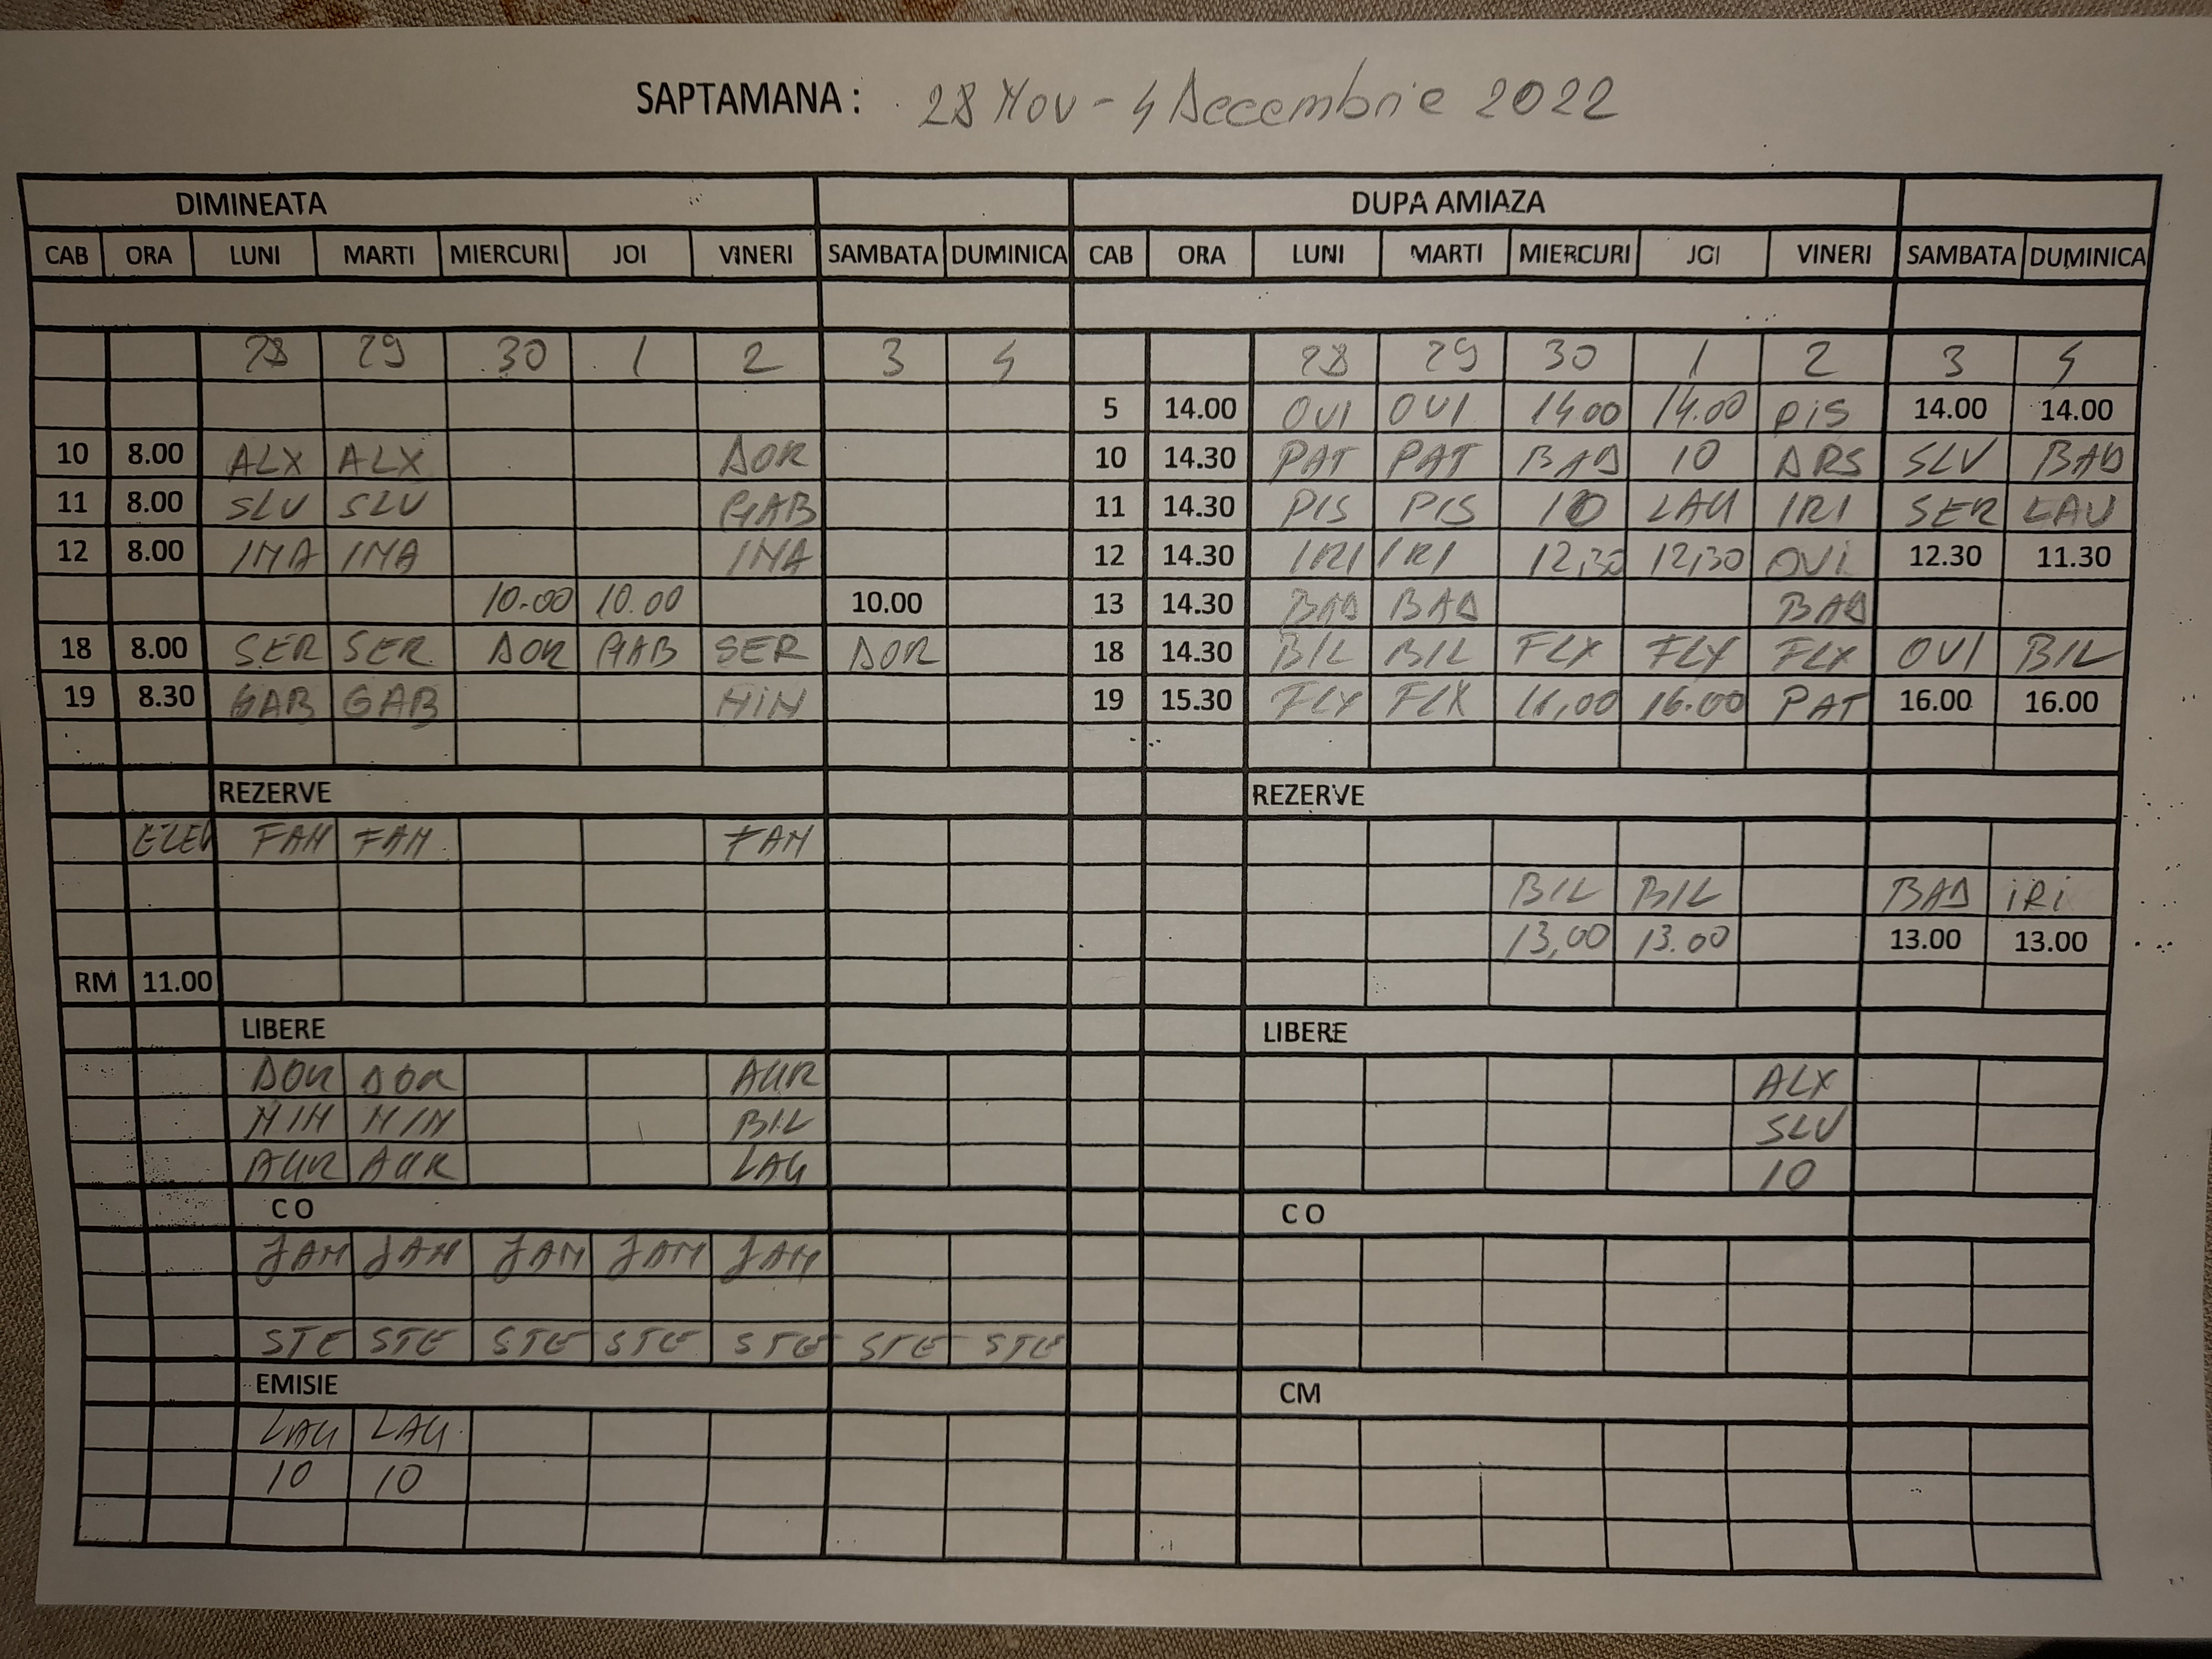 SAPTAMANA : 28 Nov - 4 Decembrie 2022
DIMINEATA DUPA AMIAZA
CAB ORA LUNI MARTI MIERCURI JOI VINERI SAMBATA DUMINICA CAB ORA LUNI MARTI MIERCURI JOI VINERI SAMBATA DUMINICA
28 29 30 1 2 3 4 28 29 30 1 2 3 4
5 14.00 OVI OVI 14.00 14.00 PIS 14.00 14.00
10 8.00 ALX ALX DOR 10 14.30 PAT PAT BAD 10 DRS SLV BAD
11 8.00 SLV SLV GAB 11 14.30 PIS PIS 10 LAU IRI SER LAU
12 8.00 INA INA INA 12 14.30 IRI IRI 12,30 12,30 OVI 12.30 11.30
10.00 10.00 10.00 13 14.30 BAD BAD BAD
18 8.00 SER SER DOR GAB SER DOR 18 14.30 BIL BIL FLX FLX FLX OVI BIL
19 8.30 GAB GAB NIN 19 15.30 FLX FLX 16,00 16.00 PAT 16.00 16.00
REZERVE REZERVE
ELEV FAN FAN FAN
BIL BIL BAD IRI
13,00 13.00 13.00 13.00
RM 11.00
LIBERE LIBERE
DOR DOR AUR ALX
NIN NIN BIL SLV
AUR AUR LAU 10
C O C O
JAN JAN JAN JAN JAN
STE STE STE STE STE STE STE
EMISIE CM
LAU LAU
10 10